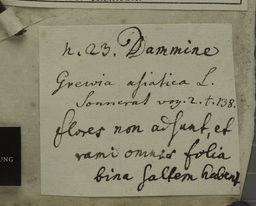 n. 23. Dammine
Grewia asiatica L.
Sonnerat voy. 2. t. 138.
flores non adsunt, et
rami omnis folia
bina saltem habent
UNG